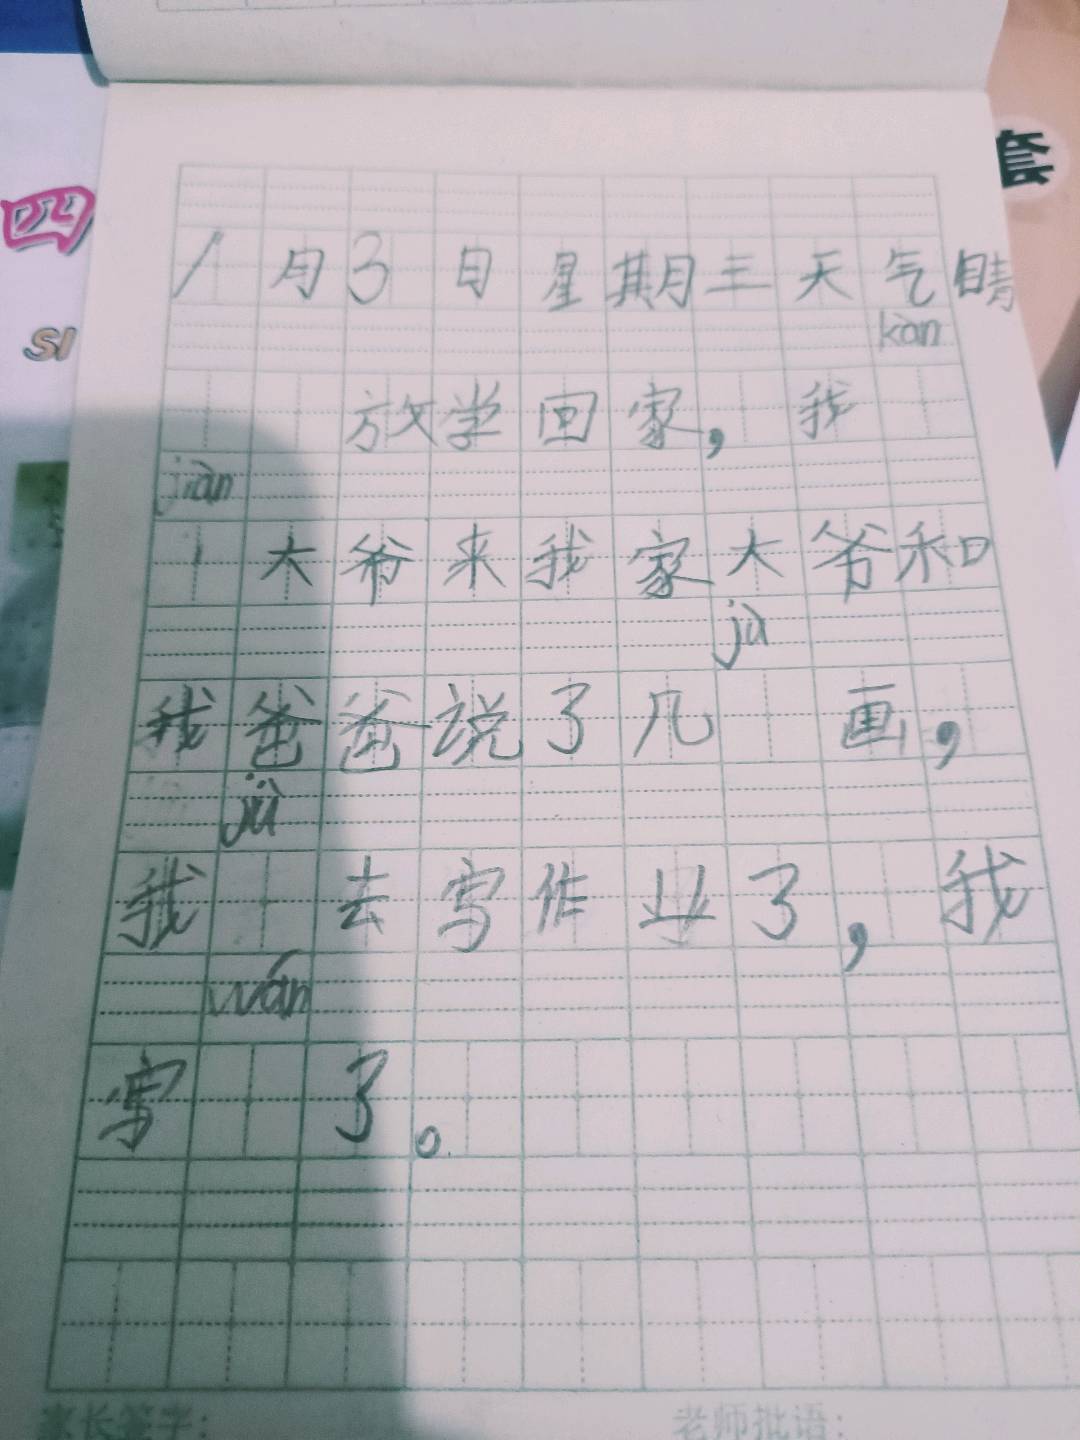 四
套
SI
1月3日星期三天气晴
kàn
放学回家,我
jiàn
大爷来我家大爷和
jù
我爸爸说了几画,
jiù
我去写作业了,我
wán
写了。
家长签字:
老师批语: